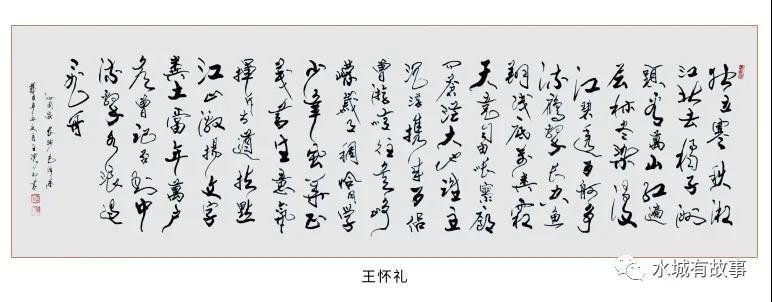 独立寒秋湘
江北去橘子洲
頭看萬山紅遍
层林尽染漫
江碧透百舸争
流鹰擊长空鱼
翔浅底萬类霜
天竞自由怅寥廓
问苍茫大地谁主
沉浮携来百侣
曾游忆往昔峥
嵘岁月稠恰同学
少年风华正
茂书生意气
挥斥方遒指点
江山激扬文字
粪土當年萬户
侯曾记否到中
流擊水浪遏
飞舟
沁园春 长沙 毛泽东
王怀礼
水城有故事